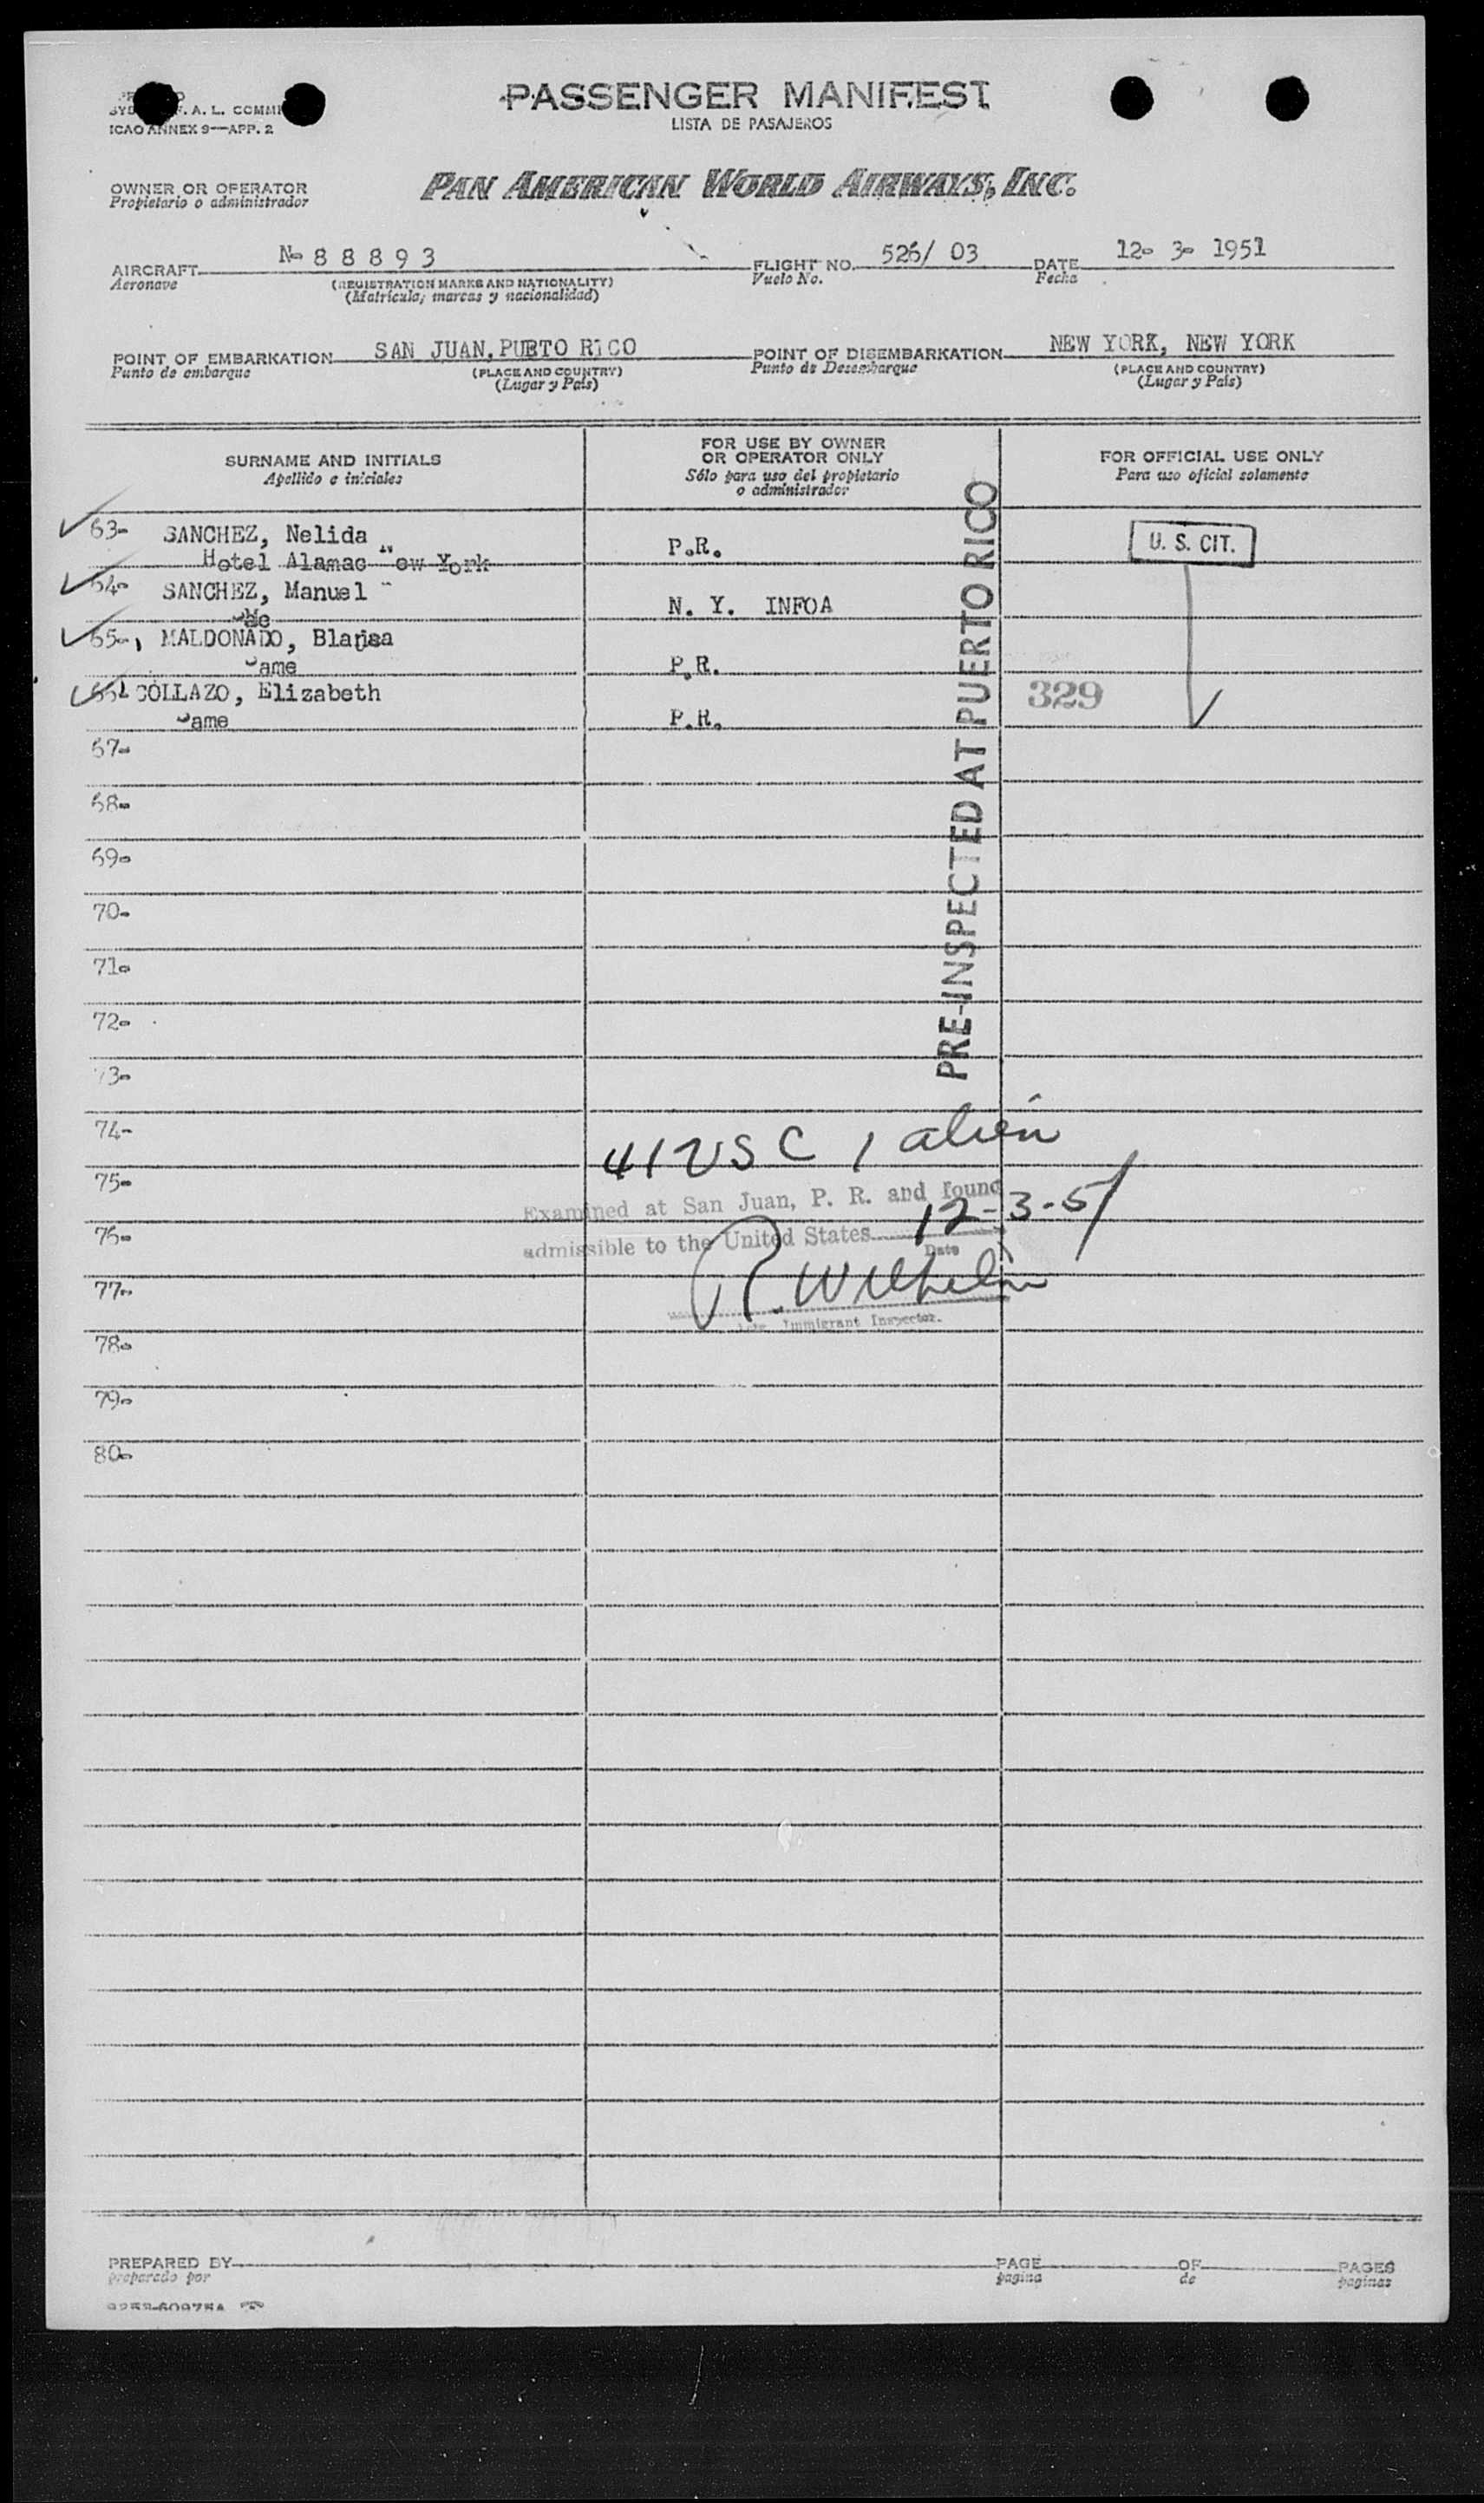 PASSENGER MANIFEST
LISTA DE PASAJEROS
A. L. COMMI
ICAO ANNEX 9—APP. 2
OWNER OR OPERATOR
Propietario o administrador
PAN AMERICAN WORLD AIRWAYS, INC.
AIRCRAFT N-88893 FLIGHT NO. 526/ 03 DATE 12- 3- 1951
Aeronave (REGISTRATION MARKS AND NATIONALITY) Vuelo No. Fecha
(Matrícula, marcas y nacionalidad)
POINT OF EMBARKATION SAN JUAN, PUETO RICO POINT OF DISEMBARKATION NEW YORK, NEW YORK
Punto de embarque (PLACE AND COUNTRY) Punto de Desembarque (PLACE AND COUNTRY)
(Lugar y País) (Lugar y País)
SURNAME AND INITIALS FOR USE BY OWNER OR OPERATOR ONLY FOR OFFICIAL USE ONLY
Apellido e iniciales Sólo para uso del propietario o administrador Para uso oficial solamente
63- SANCHEZ, Nelida P.R. U. S. CIT.
Hotel Alamac New York
64- SANCHEZ, Manuel N. Y. INFOA
65- MALDONADO, Blanca P.R.
Same
66- COLLAZO, Elizabeth P.R. 329
Same
PRE-INSPECTED AT PUERTO RICO
67-
68-
69-
70-
71-
72-
73-
74-
41 USC 1 alien
75-
Examined at San Juan, P. R. and found
76-
admissible to the United States 12-3-51
Date
77-
R. Wilhelm
Immigrant Inspector.
78-
79-
80-
PREPARED BY PAGE OF PAGES
preparado por pagina de paginas